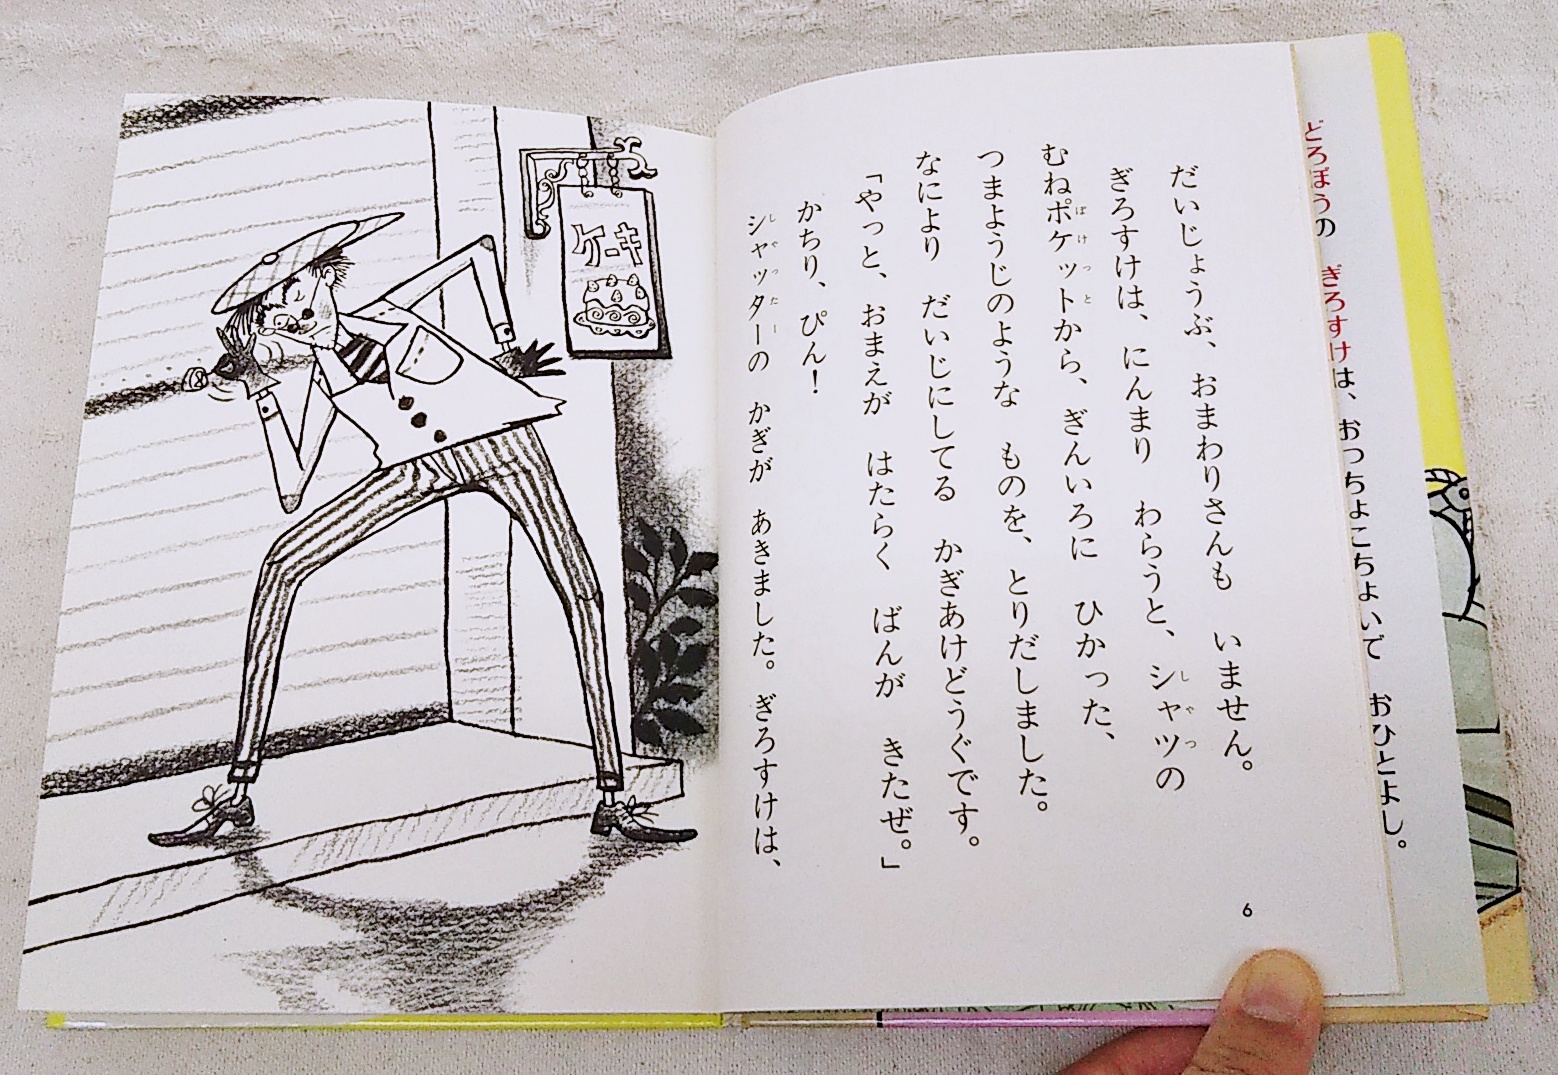 どろぼうの ぎろすけは、おっちょこちょいで おひとよし。
だいじょうぶ、おまわりさんも いません。
ぎろすけは、にんまり わらうと、シャツの
しゃつ
むねポケットから、ぎんいろに ひかった、
ぽけっと
つまようじのような ものを、とりだしました。
なにより だいじにしてる かぎあけどうぐです。
「やっと、おまえが はたらく ばんが きたぜ。」
かちり、ぴん!
シャッターの かぎが あきました。ぎろすけは、
しゃったー
6
ケーキ